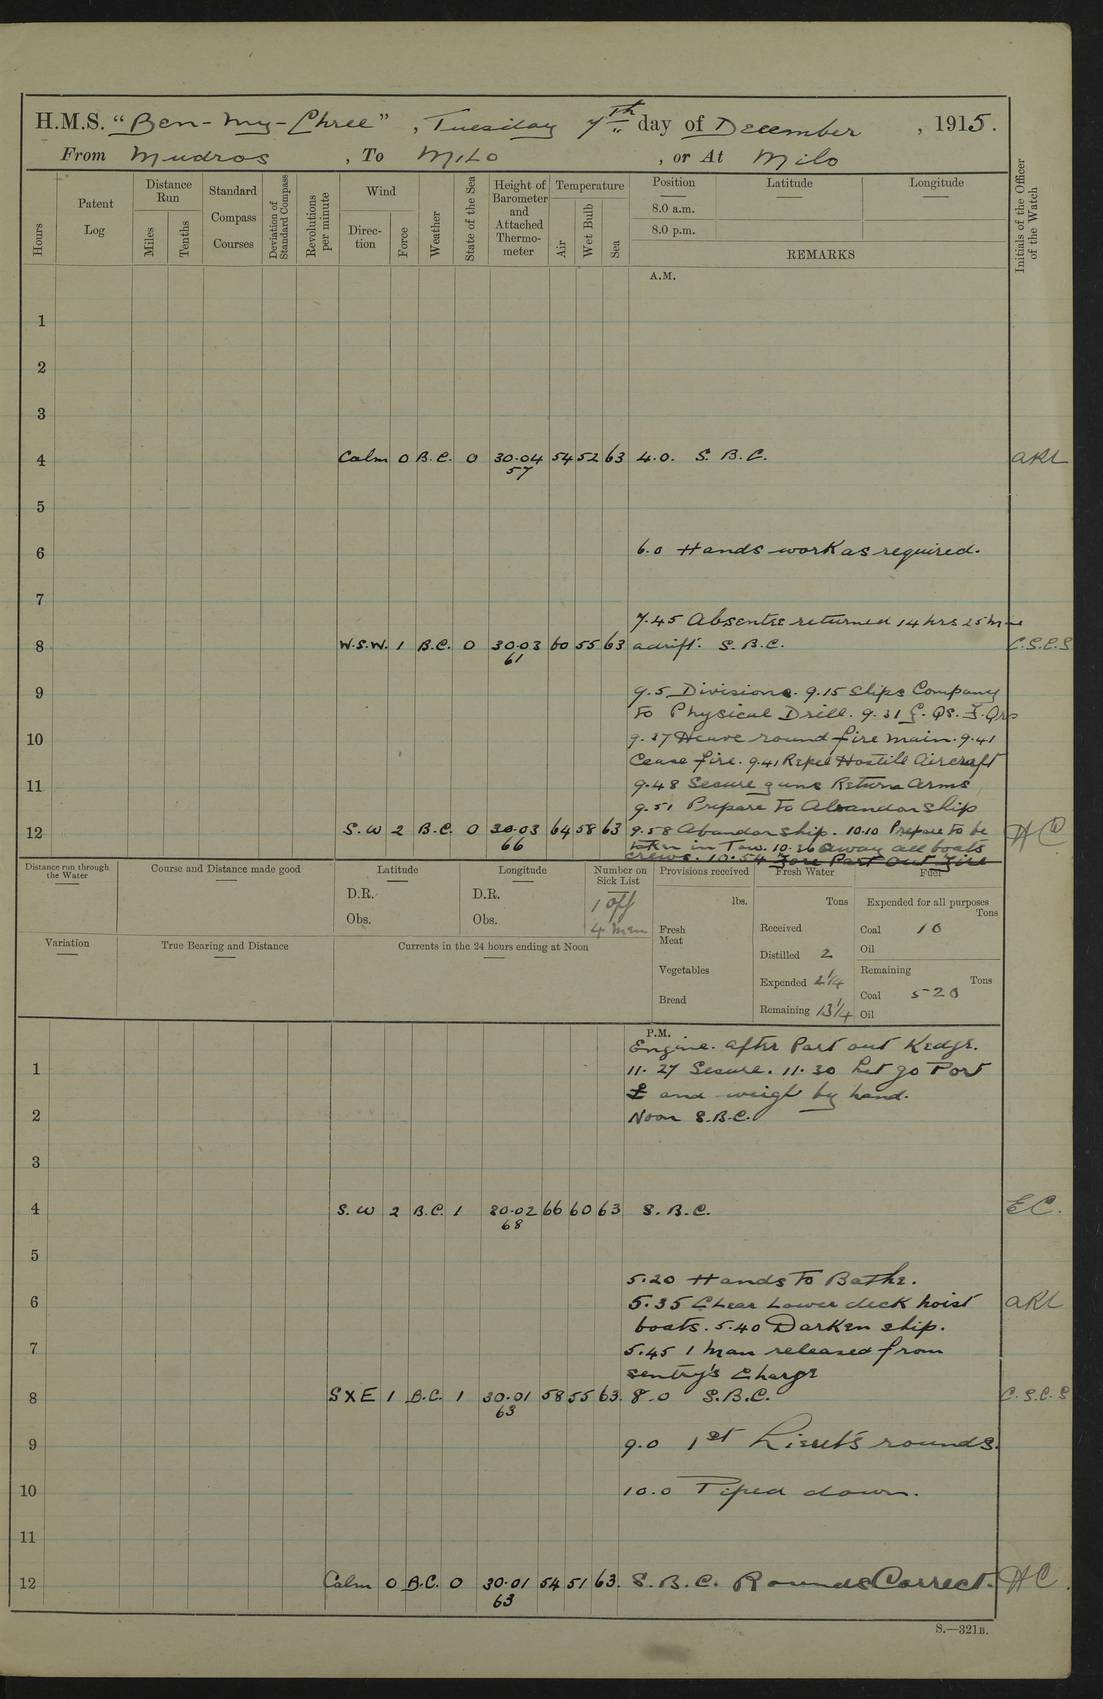 H.M.S. "Ben-my-Chree", Tuesday 7th day of December, 1915.
From Mudros, To Milo, or At Milo
Hours
Patent Log
Distance Run
Miles
Tenths
Standard Compass Courses
Deviation of Standard Compass
Revolutions per minute
Wind
Direction
Force
Weather
State of the Sea
Height of Barometer and Attached Thermometer
Temperature
Air
Wet Bulb
Sea
Position
Latitude
Longitude
8.0 a.m.
8.0 p.m.
REMARKS
Initials of the Officer of the Watch
A.M.
1
2
3
4 Calm 0 B.C. 0 30.04 54 52 63 4.0. S.B.C. AKL
57
5
6 6.0 Hands work as required.
7
7.45 Absentee returned 14 hrs 25 mins
8 W.S.W. 1 B.C. 0 30.03 60 55 63 adrift. S.B.C. C.S.C.S
61
9 9.5 Divisions. 9.15 Ships Company
to Physical Drill. 9.31 G. Qs. F. Qrs
10 9.37 Heave round fire main. 9.41
Cease fire. 9.41 Repel Hostile Aircraft
11 9.48 Secure guns Return Arms
9.51 Prepare to Abandon Ship
12 S.W 2 B.C. 0 30.03 64 58 63 9.58 Abandon ship. 10.10 Prepare to be
66 taken in Tow. 10.26 away all boats
crews. 10.54 Fore Part out Fire
Distance run through the Water
Course and Distance made good
Latitude
D.R.
Obs.
Longitude
D.R.
Obs.
Number on Sick List
1 Off
4 men
Provisions received
lbs.
Fresh Meat
Vegetables
Bread
Fresh Water
Tons
Received
Distilled 2
Expended 2 1/4
Remaining 131/4
Fuel
Expended for all purposes
Tons
Coal 10
Oil
Remaining
Tons
Coal 520
Oil
Variation
True Bearing and Distance
Currents in the 24 hours ending at Noon
P.M.
Engine. After Part out Kedge.
1 11.27 Secure. 11.30 Let go Port
and weigh by hand.
2 Noon S.B.C.
3
4 S.W 2 B.C. 1 30.02 66 60 63 S.B.C. EC.
68
5
5.20 Hands to Bathe.
6 5.35 Clear Lower deck hoist AKL
boats. 5.40 Darken ship.
7 5.45 1 Man released from
sentry's charge
8 SXE 1 B.C. 1 30.01 58 55 63. 8.0 S.B.C. C.S.C.S
63
9 9.0 1st Lieut's rounds.
10 10.0 Piped down.
11
12 Calm 0 B.C. 0 30.01 54 51 63. S.B.C. Rounds Correct. HC.
63
S.—321B.